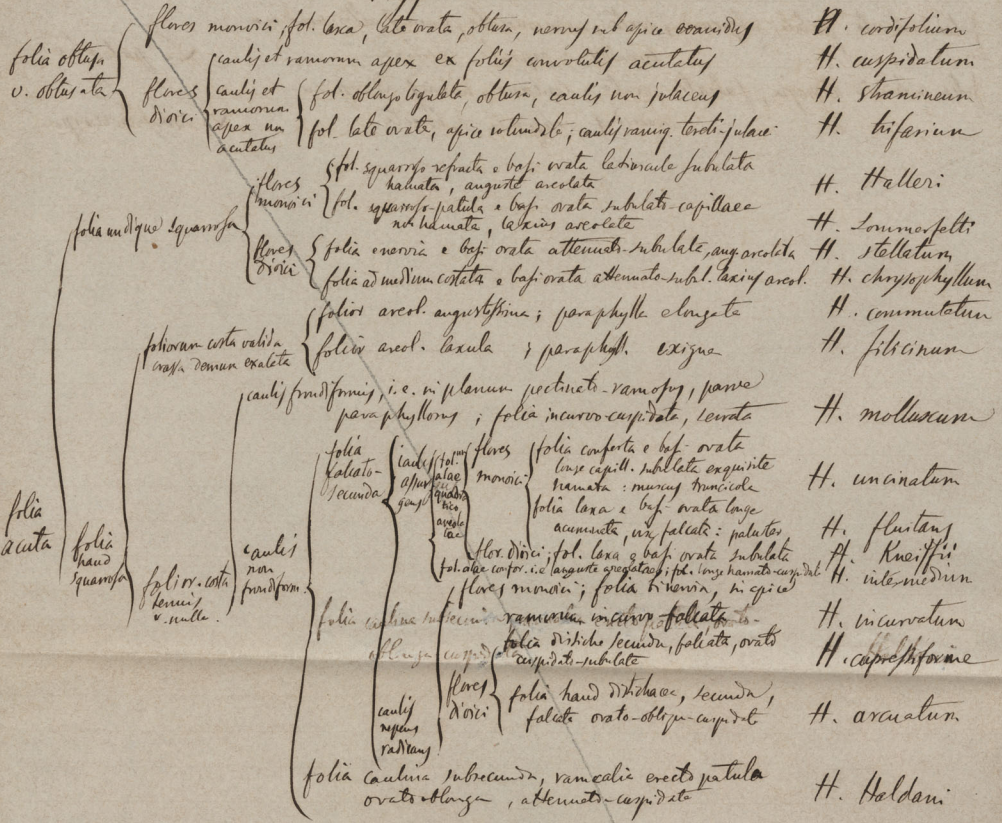 flores monoici, fol. laxa, late ovata, obtusa, nervus sub apice evanidus H. cordifolium
folia obtusa
v. obtusata
caulis et ramorum apex ex foliis convolutis acutatus H. cuspidatum
flores
dioici
caulis et
ramorum
apex non
acutatus
fol. oblongo ligulata, obtusa, caulis non julaceus H. stramineum
fol. late ovata, apice rotundata; caulis ramiq. tereti-julacei H. trifarium
folia undique squarrosa
flores
monoici
fol. squarroso refracta e basi ovata latiuscule subulata
hamata, anguste areolata H. Halleri
fol. squarroso-patula e basi ovata subulato-capillacea
non hamata, laxius areolata H. Sommerfelti
flores
dioici
folia enervia e basi ovata attenuato-subulata, ang. areolata H. stellatum
folia ad medium costata e basi ovata attenuato-subul. laxius areol. H. chrysophyllum
foliorum costa valida
crassa demum exaltata
folior areol. angustissima; paraphylla elongata H. commutatum
folior areol. laxula; paraphyll. exigua H. filicinum
caulis frondiformis, i.e. in planum pectinato-ramosus, parce
paraphyllosus; folia incurvo-cuspidata, serrata H. molluscum
folia
acuta
folia
haud
squarrosa
folior. costa
tenuis
v. nulla
caulis
non
frondiform.
folia
falcato-
secunda
caulis
assur
gens
fol.
alae
quadra
tico
areola
tae
flores
monoici
folia conferta e basi ovata
longe capill. subulata exquisite
hamata: muscus truncicola H. uncinatum
folia laxa e basi ovata longe
acuminata, vix falcata: paluster H. fluitans
flor. dioici; fol. laxa e basi ovata subulata H. Kneiffii
fol. alae confor. i.e. anguste areolatae; fol. longe hamato-cuspidat. H. intermedium
flores monoici; folia binervia, in apice
ramorum incurvo falcata H. incurvatum
folia caulina subsecunda
oblonga cuspidata
folia disticho secunda, falcata, ovato
cuspidato-subulata H. cupressiforme
flores
dioici
folia haud distichacea, secunda,
falcata ovato-oblonga-cuspidata H. arcuatum
caulis
repens
radicans
folia caulina subsecunda, ramealia erecto patula
ovato-oblonga, attenuato-cuspidata H. Haldani